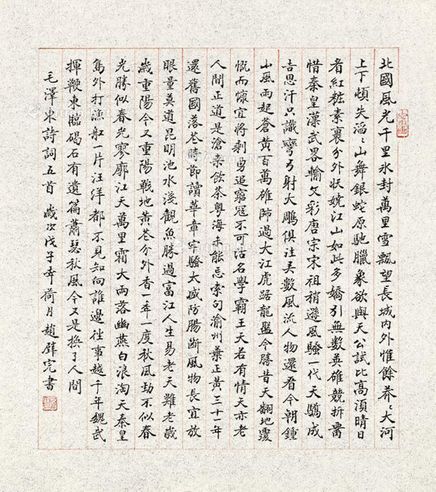 北國風光千里冰封萬里雪飄望長城內外惟餘莽〻大河
上下頓失滔〻山舞銀蛇原馳臘象欲與天公試比高須晴日
看紅粧素裹分外妖嬈江山如此多嬌引無數英雄競折腰
惜秦皇漢武略輸文彩唐宗宋祖稍遜風騷一代天驕成
吉思汗只識彎弓射大鵰俱往矣數風流人物還看今朝鍾
山風雨起蒼黃百萬雄師過大江虎踞龍盤今勝昔天翻地覆
慨而慷宜將剩勇追窮寇不可沽名學霸王天若有情天亦老
人間正道是滄桑飲茶粵海未能忘索句渝州葉正黃三十一年
還舊國落花時節讀華章牢騷太盛防腸斷風物長宜放
眼量莫道昆明池水淺觀魚勝過富江人生易老天難老歲
歲重陽今又重陽戰地黃花分外香一年一度秋風勁不似春
光勝似春光寥廓江天萬里霜大雨落幽燕白浪滔天秦皇
島外打漁船一片汪洋都不見知向誰邊往事越千年魏武
揮鞭東臨碣石有遺篇蕭瑟秋風今又是換了人間
毛澤東詩詞五首 歲次戊子年荷月趙鋒完書